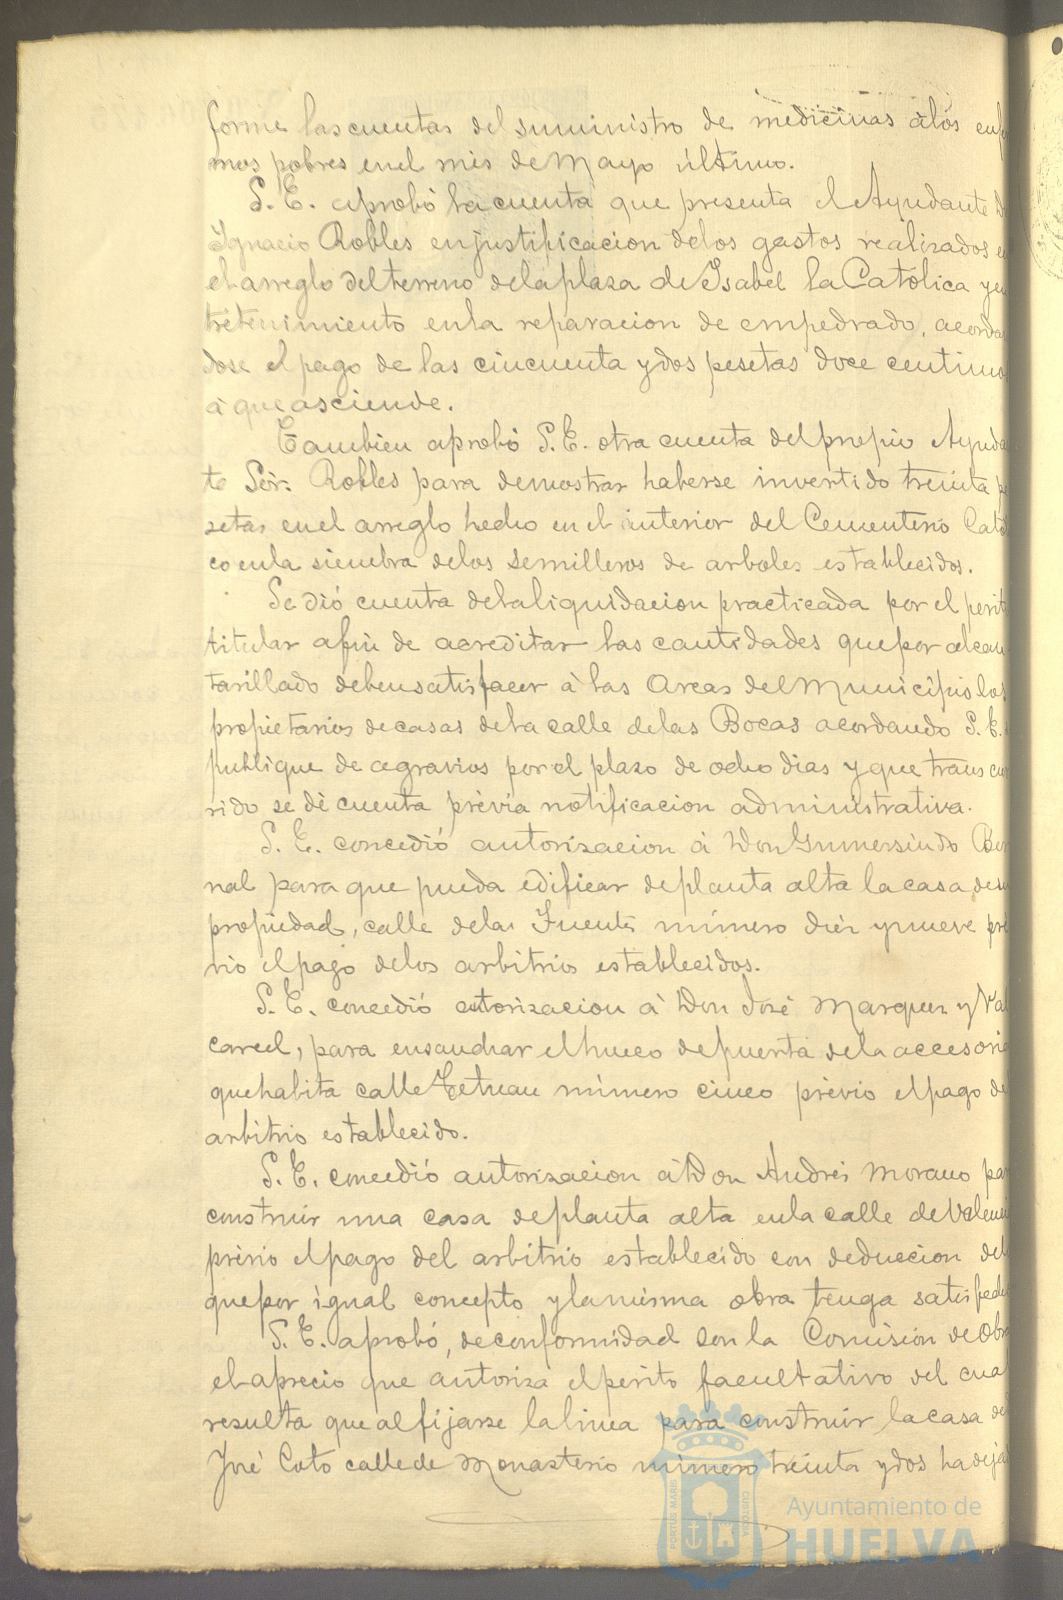 forme las cuentas del suministro de medicinas á los enfer
mos pobres en el mes de Mayo último.
S. E. aprobó la cuenta que presenta el Ayudante D
Ignacio Robles en justificacion de los gastos realizados en
el arreglo del terreno de la plaza de Isabel la Católica y en
tretenimiento en la reparacion de empedrado, acorda
dose el pago de las cincuenta y dos pesetas doce centimo
á que asciende.
Tambien aprobó S. E. otra cuenta del propio Ayuda
te Sõr. Robles para demostrar haberse invertido treinta pe
setas en el arreglo hecho en el interior del Cementerio Cató
co en la siembra de los semilleros de arboles establecidos.
Se dió cuenta de la liquidacion practicada por el perit
titular afin de acreditar las cantidades que por alcan
tarillado deben satisfacer á las Arcas del Municipio los
propietarios de casas de la calle de las Bocas acordando S. E.
publique de agravios por el plazo de ocho dias y que trans cur
rido se dé cuenta prévia notificacion administrativa.
S. E. concedió autorizacion á Don Gumersindo Ber
nal para que pueda edificar de planta alta la casa de su
propiedad, calle de la Fuente número diez y nueve pre
vio el pago de los arbitrios establecidos.
S. E. concedió autorizacion á Don José Marquez y Val
carcel, para ensanchar el hueco de puerta de la accesoria
que habita calle Tetuan número cinco prévio el pago de
arbitrio establecido.
S. E. concedió autorizacion á Don Andrés Morano par
construir una casa de planta alta en la calle de Valenci
prévio el pago del arbitrio establecido con deduccion del
que por igual concepto y la misma obra tenga satisfech
S. E. aprobó, de conformidad con la Comisión de Obr
el aprecio que autoriza el perito facultativo del cual
resulta que al fijarse la linea para construir la casa de
José Coto calle de Monasterio número treinta y dos ha deja
PORTUS MARIS
CUSTODIA
Ayuntamiento de
HUELVA